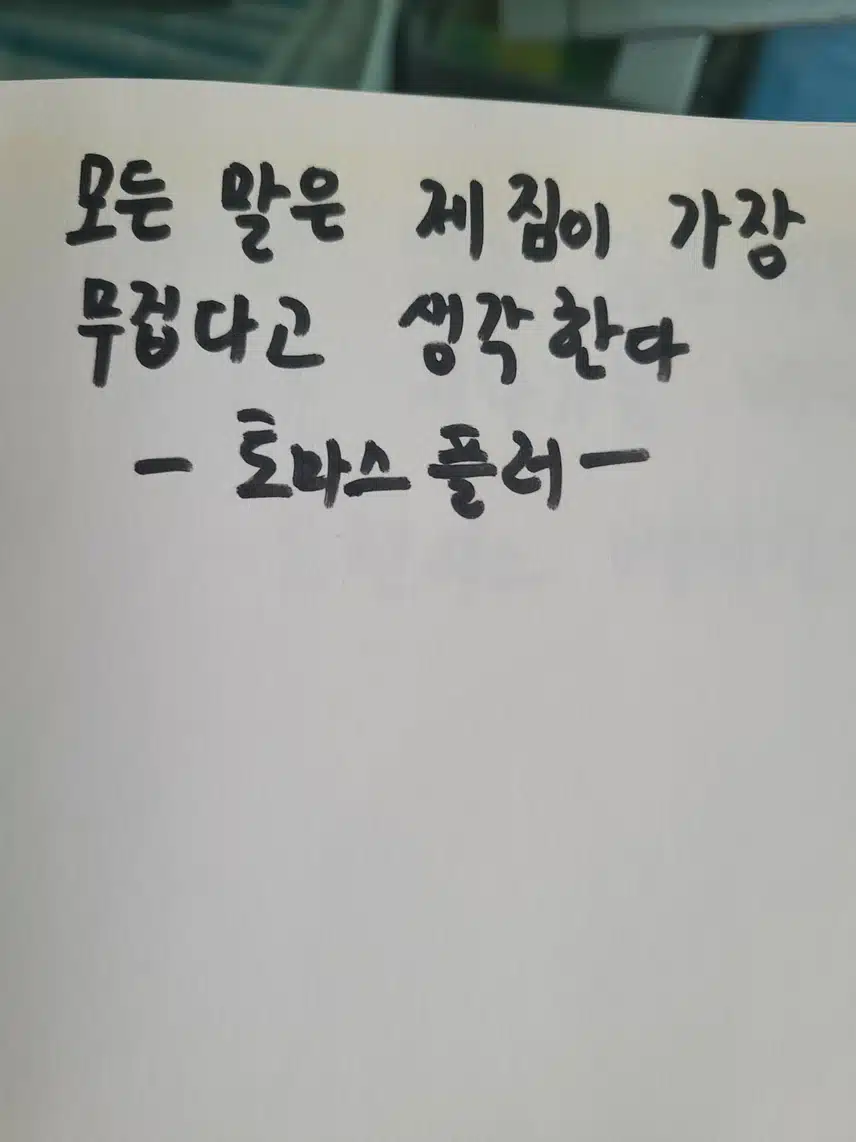 모든 말은 제 짐이 가장
무겁다고 생각한다
- 토마스 플러 -